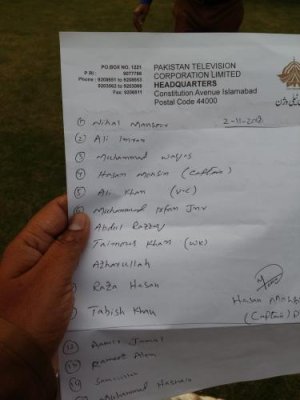 PO.BOX NO. 1221
P.RI : 9077788
Phone : 9208651 to 9208653
Fax: 9206811
PAKISTAN TELEVISION
CORPORATION LIMITED
HEADQUARTERS
Constitution Avenue Islamabad
Postal Code 44000
① Nihal Mansoor
2-11-2012
② Ali Imran
③ Muhammad Waqas
④ Hasan Mohsin (Captain)
⑤ Ali Khan (V-C)
⑥ Muhammad Irfan Jnr
Abdul Razzaq
Taimour Khan (WK)
Azharullah
Raza Hasan
Tabish Khan
Hasan
(Captain)
⑫ Aamir Jamal
⑬ Rameez Alam
⑭ Samiullah
Muhammad Hasnain